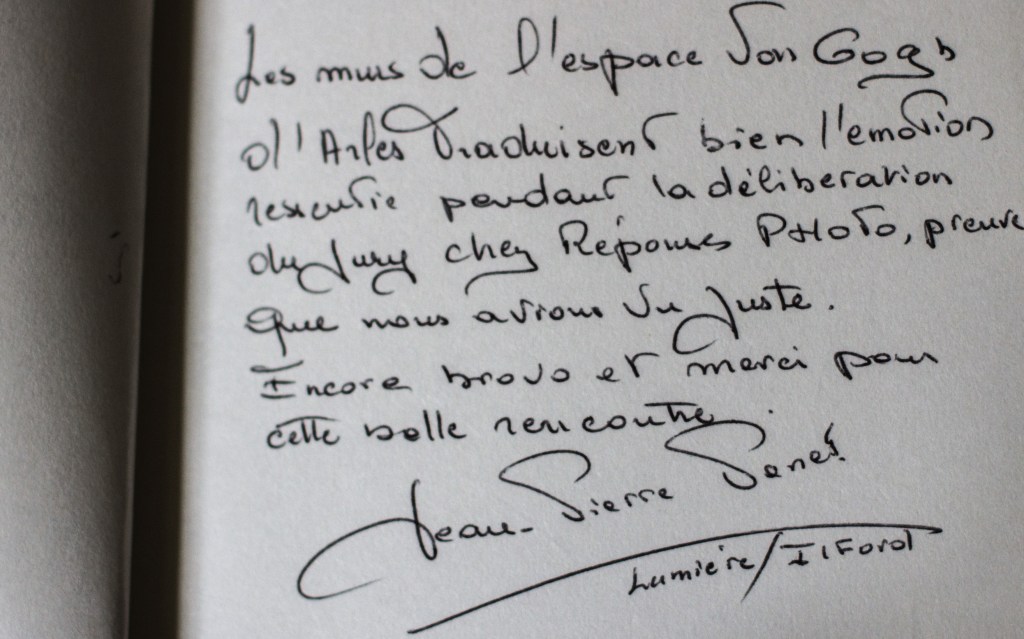 Les murs de l'espace Van Gogh
d'Arles traduisent bien l'emotion
ressentie pendant la déliberation
du Jury chez Réponses PHOTO, preuve
que nous avions vu juste.
Encore bravo et merci pour
cette belle rencontre.
Jean-Pierre
Lumière/Ilford